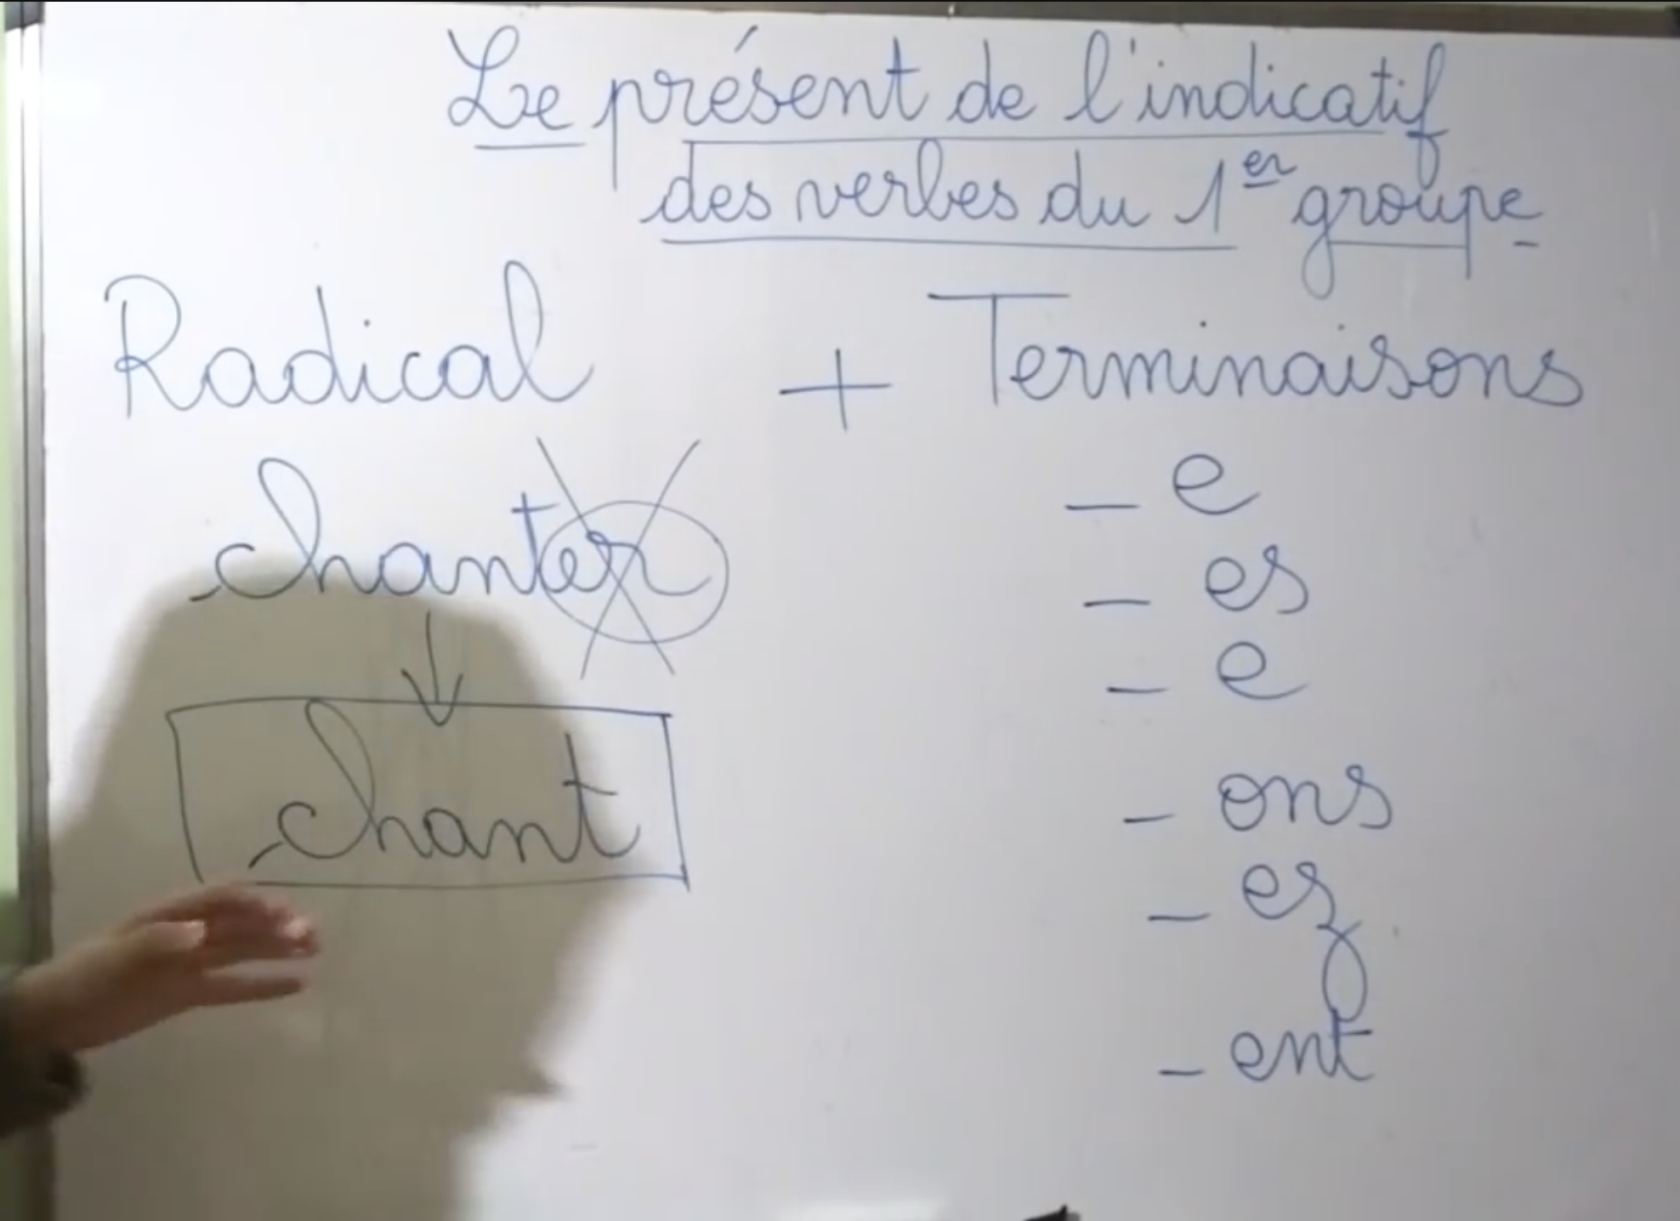 Le présent de l'indicatif
des verbes du 1er groupe
Radical + Terminaisons
chanter
- e
- es
- e
chant
- ons
- ez
- ent